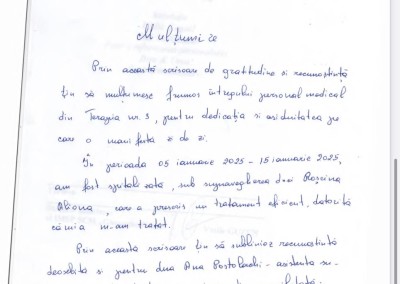 Mulțumire
Prin această scrisoare de gratitudine si recunoștință
țin să mulțumesc frumos întregului personal medical
din Terapia nr. 3, pentru dedicația si asiduitatea pe
care o manifestă zi de zi.
În perioada 05 ianuarie 2025 - 15 ianuarie 2025,
am fost spitalizată, sub supravegherea dnei Roșcina
Aliona, care a prescris un tratament eficient, datorită
căruia m-am tratat.
Prin această scrisoare țin să subliniez recunoștință
deosebită si pentru dna Ana Postolachi - asistenta su-